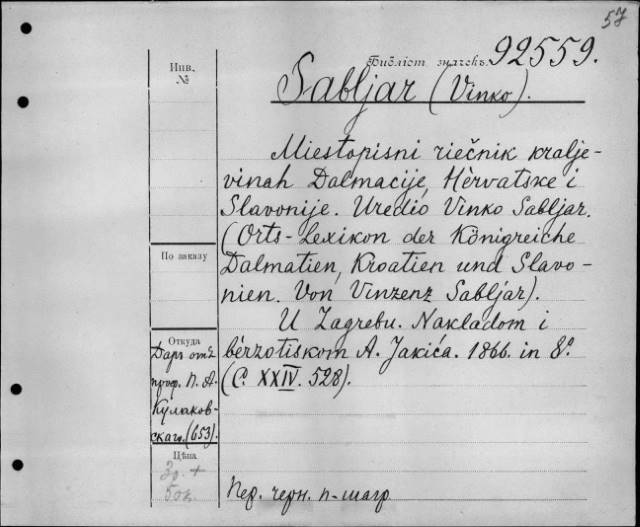 57
Инв.
№
Библіот. значекъ 92559.
Sabljar (Vinko).
Miestopisni riečnik kralje-
vinah Dalmacije, Hèrvatske i
Slavonije. Uredio Vinko Sabljar.
(Orts-Lexikon der Königreiche
Dalmatien, Kroatien und Slavo-
nien. Von Vinzenz Sabljar).
U Zagrebu. Nakladom i
bèrzotiskom A. Jakića. 1866. in 8º.
(С. XXIV. 528).
По заказу
Откуда
Даръ отъ
проф. П. А.
Кулаков-
скаго. (653).
Цѣна
3р. +
50к.
Пер. черн. п-шагр